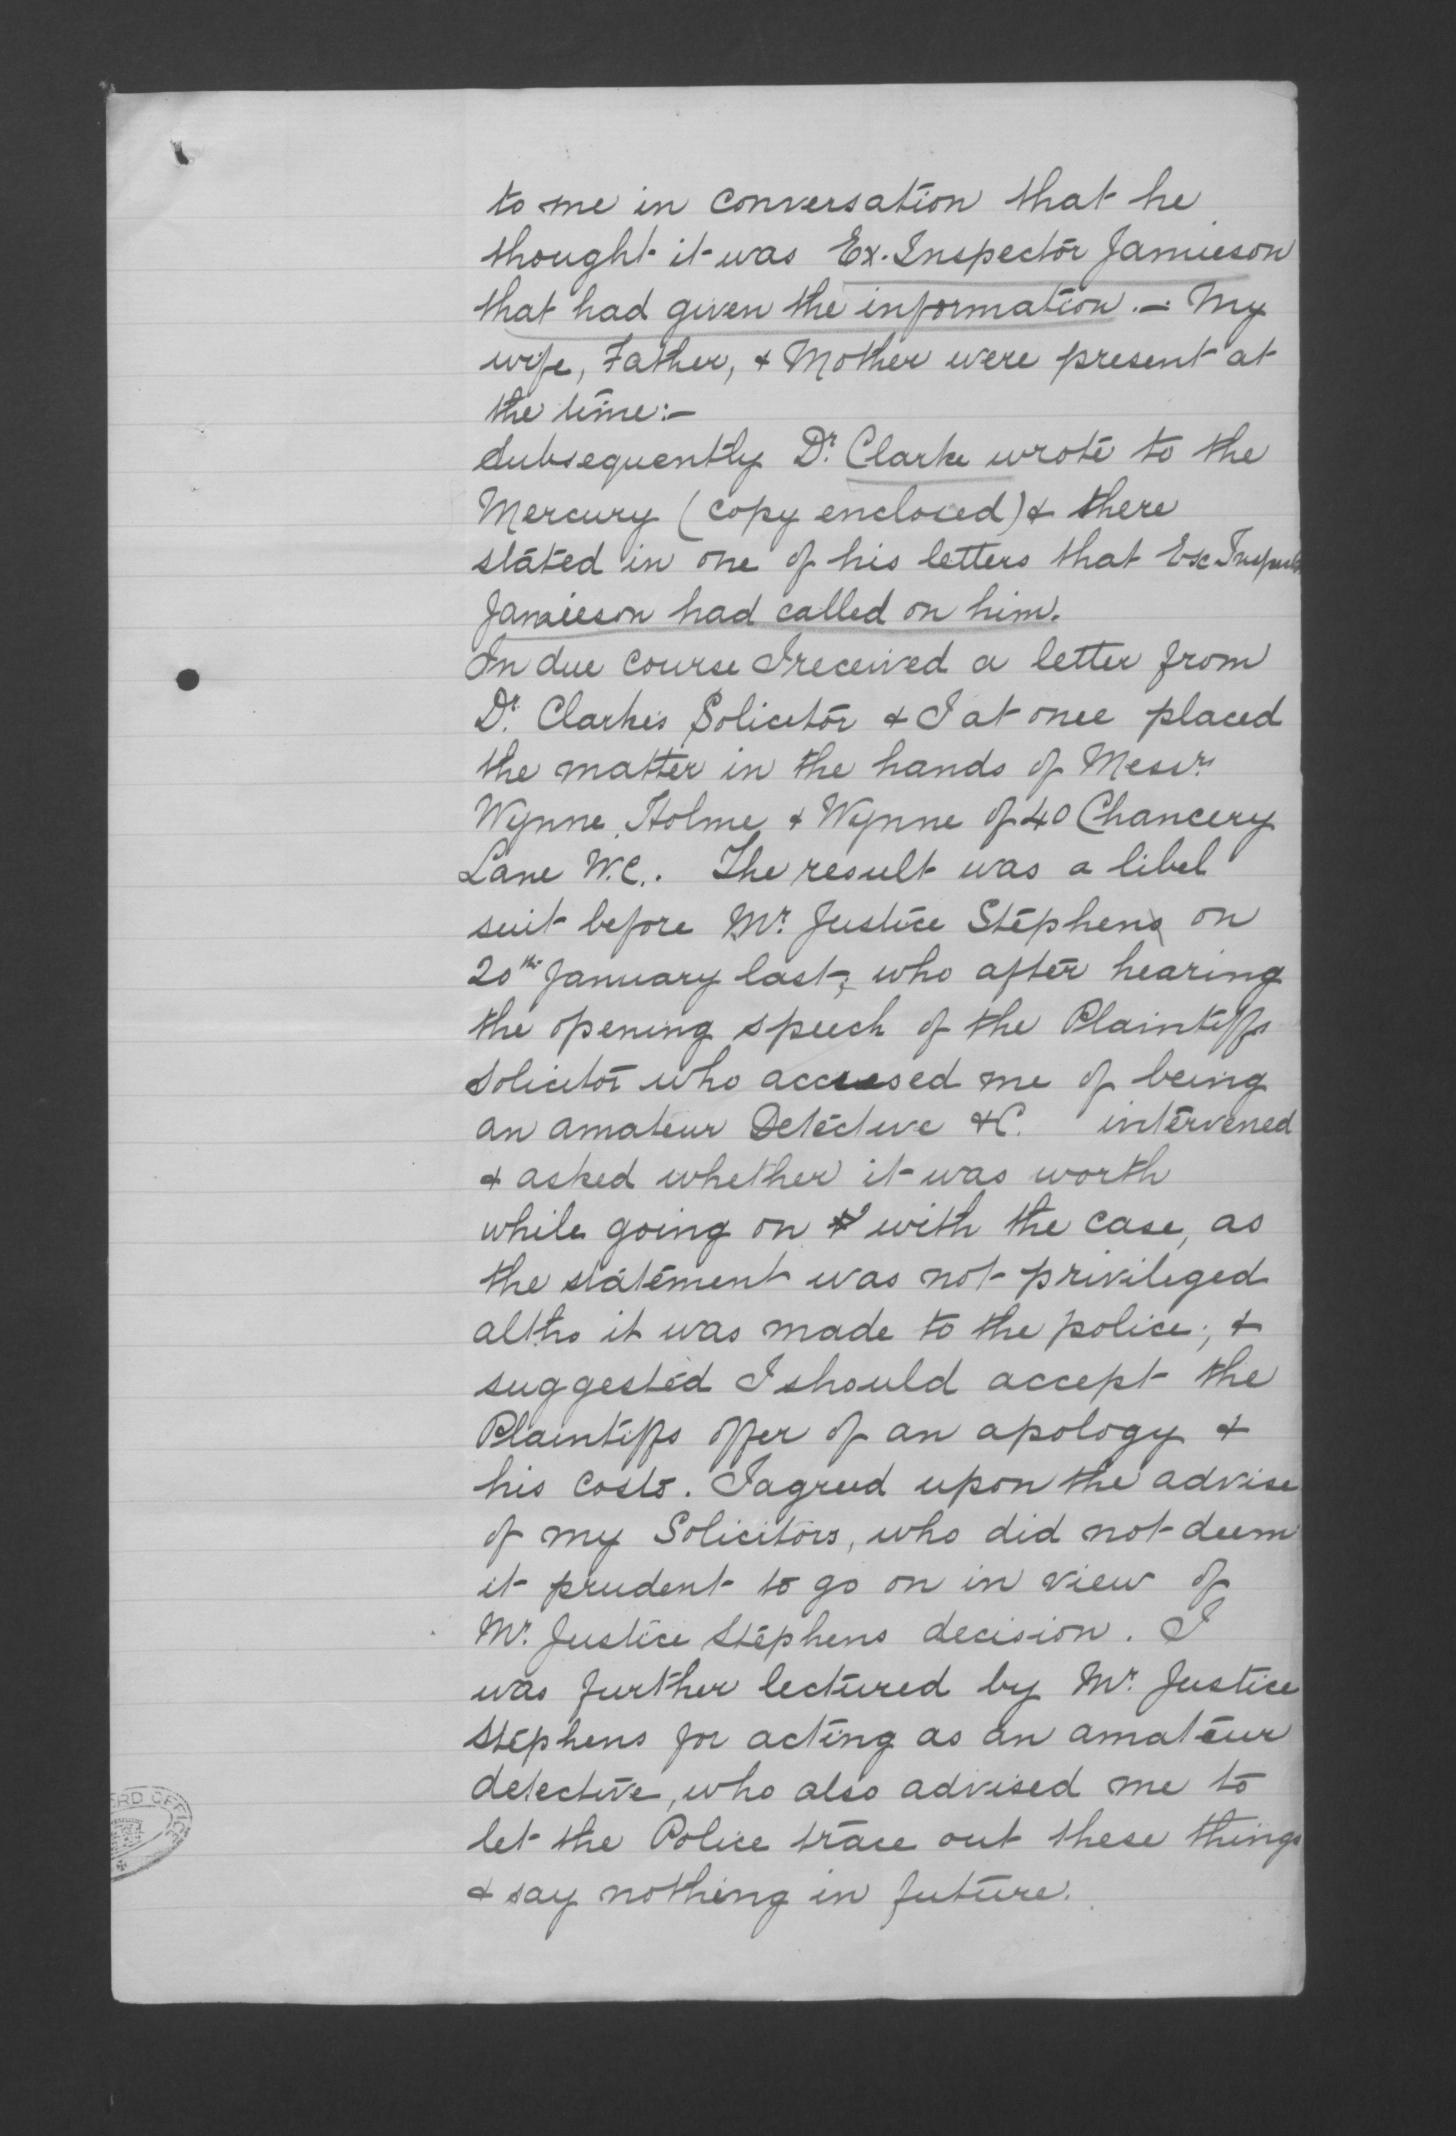 to me in conversation that he
thought it was Ex. Inspector Jamieson
that had given the information. — My
wife, Father, & Mother were present at
the time:—
Subsequently Dr. Clarke wrote to the
Mercury (copy enclosed) & there
stated in one of his letters that Ex Inspector
Jamieson had called on him.
In due course I received a letter from
Dr. Clarkes Solicitor & I at once placed
the matter in the hands of Messrs
Wynne, Holme & Wynne of 40 Chancery
Lane W.C.. The result was a libel
suit before Mr. Justice Stephens on
20th January last, who after hearing
the opening speech of the Plaintiffs
Solicitor who accused me of being
an amateur Detective &C. intervened
& asked whether it was worth
while going on with the case, as
the statement was not privileged
altho it was made to the police; &
suggested I should accept the
Plaintiffs offer of an apology &
his costs. I agreed upon the advise
of my Solicitors, who did not deem
it prudent to go on in view of
Mr. Justice Stephens decision. I
was further lectured by Mr. Justice
Stephens for acting as an amateur
detective, who also advised me to
let the Police trace out these things
& say nothing in future.
ORD OFFICE